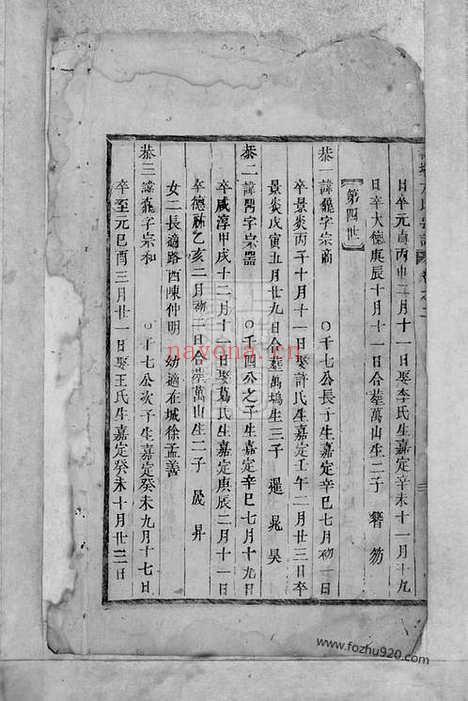 日卒元貞丙申二月十一日娶李氏生嘉定辛未十一月十九
日卒大德庚辰十月十一日合塟萬山生二子
【第四世】
恭一諱 字宗 ○千七公長子生嘉定辛巳七月初一日
卒景炎丙子十月十一日娶許氏生嘉定壬午二月廿三日卒
景炎戊寅五月廿九日合塟萬塢生三子 暹 晁 昊
恭二諱 字宗器 ○千四公之子生嘉定辛巳七月十九日
卒咸淳甲戌十二月十一日娶葛氏生嘉定庚辰二月十一日
卒德祐乙亥二月初二日合塟萬山生二子 晟 昇
女二長適路西陳仲明 幼適在城徐孟善
恭三諱 字宗和 ○千七公次子生嘉定癸未九月十七日
卒至元己酉三月廿一日娶王氏生嘉定癸未十月廿二日
nayona.cn
www.fozhu920.com